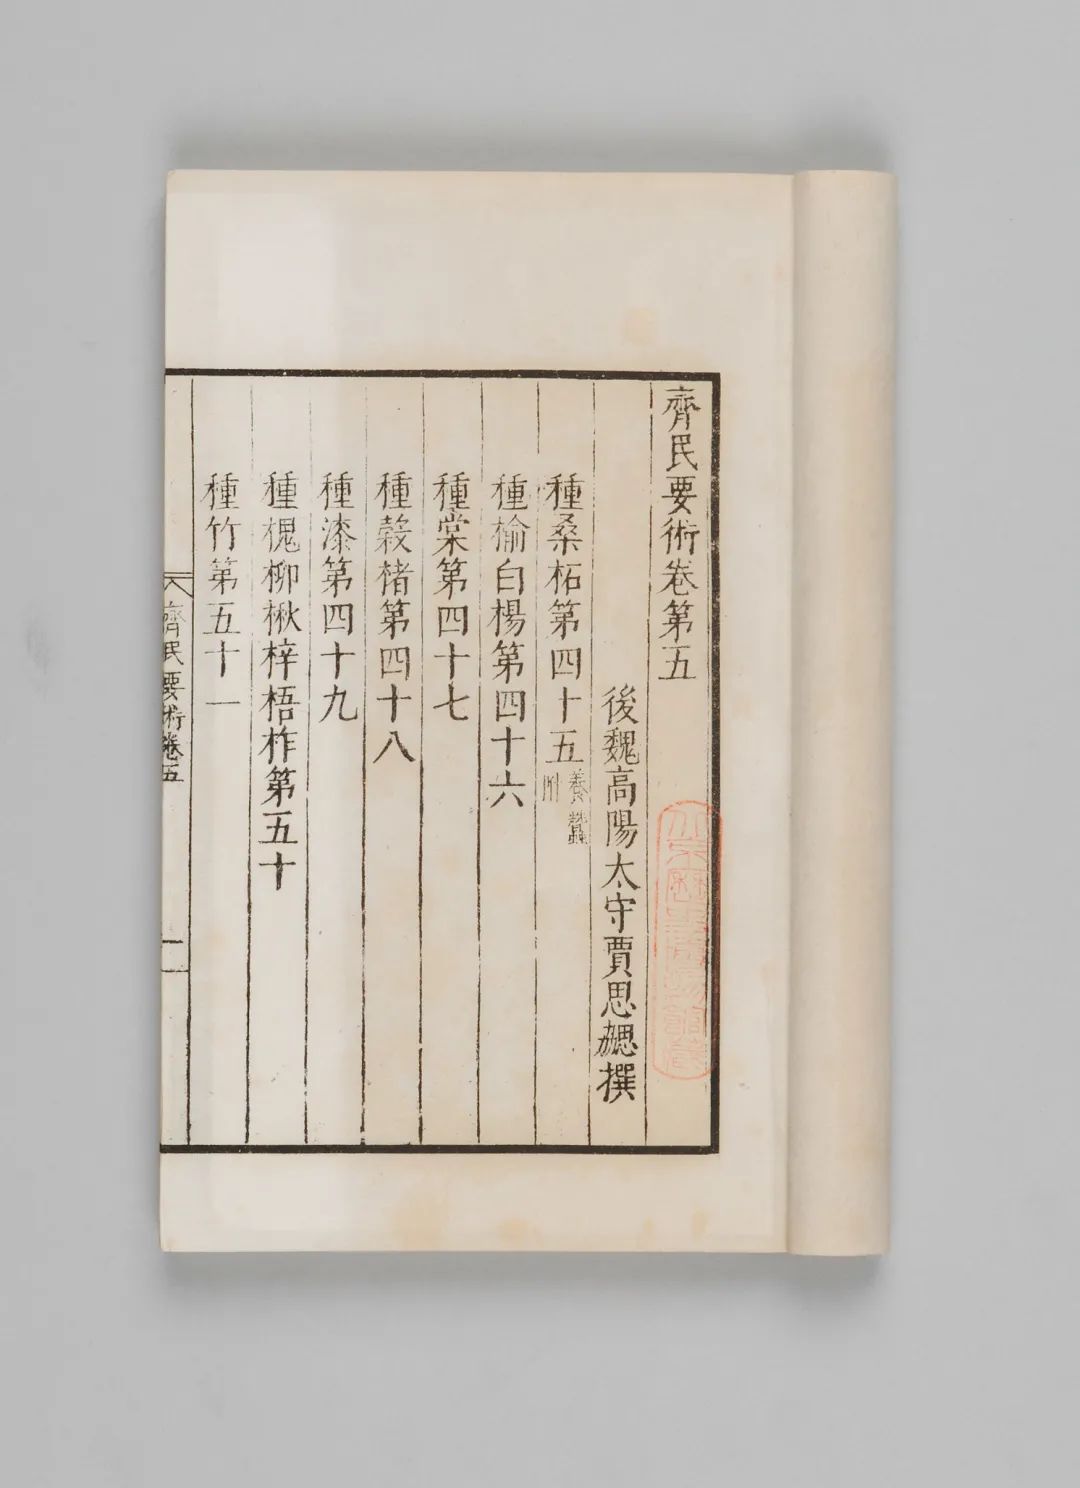 齊民要術卷第五
後魏高陽太守賈思勰撰
種桑柘第四十五養蠶附
種榆白楊第四十六
種棠第四十七
種榖楮第四十八
種漆第四十九
種槐柳楸梓梧柞第五十
種竹第五十一
齊民要術卷五
一